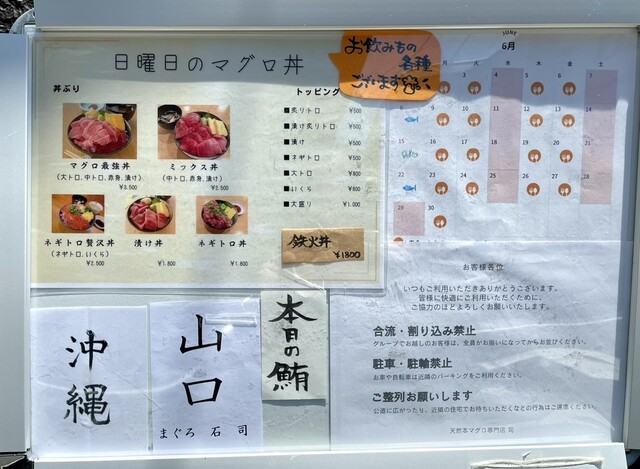 日曜日のマグロ丼
お飲みもの
各種
ございます
丼ぶり
マグロ最強丼
(大トロ、中トロ、赤身、漬け)
¥3.500
ミックス丼
(中トロ、赤身、漬け)
¥2.500
ネギトロ贅沢丼
(ネギトロ、いくら)
¥2.500
漬け丼
¥1.800
ネギトロ丼
¥1.800
トッピング
■炙りトロ ¥500
■漬け炙りトロ ¥500
■漬け ¥500
■ネギトロ ¥500
■大トロ ¥800
■いくら ¥800
■大盛り ¥1.000
鉄火丼
¥1800
JUNE
6月
月 火 水 木 金 土
2 3 4 5 6 7
8 9 10 11 12 13 14
15 16 17 18 19 20 21
22 23 24 25 26 27 28
29 30
お客様各位
いつもご利用いただきありがとうございます。
皆様に快適にご利用いただくために、
ご協力のほどよろしくお願いいたします。
合流・割り込み禁止
グループでお越しのお客様は、全員がお揃いになってからお並びください。
駐車・駐輪禁止
お車や自転車は近隣のパーキングをご利用ください。
ご整列お願いします
公道に広がったり、近隣の住宅でお待ちいただくなどの行為はご遠慮ください。
天然本マグロ専門店 司
本日の鮪
山口
まぐろ 石司
沖縄